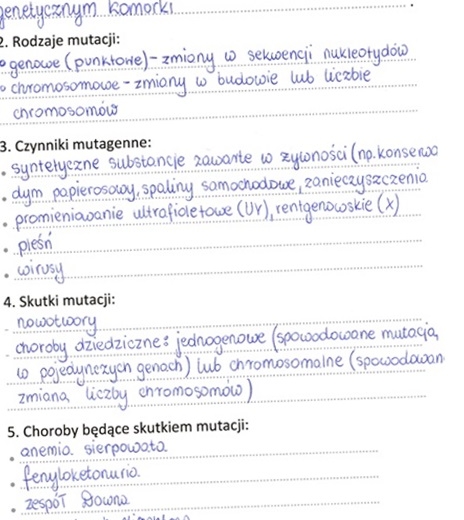 genetycznym komórki
2. Rodzaje mutacji:
• genowe (punktowe) - zmiany w sekwencji nukleotydów
• chromosomowe - zmiany w budowie lub liczbie
chromosomów
3. Czynniki mutagenne:
• syntetyczne substancje zawarte w żywności (np. konserwa
• dym papierosowy, spaliny samochodowe, zanieczyszczenia
• promieniowanie ultrafioletowe (UV), rentgenowskie (X)
• pleśń
• wirusy
4. Skutki mutacji:
- nowotwory
- choroby dziedziczne: jednogenowe (spowodowane mutacją
w pojedynczych genach) lub chromosomalne (spowodowan
zmianą liczby chromosomów)
5. Choroby będące skutkiem mutacji:
• anemia sierpowata
• fenyloketonuria
• zespół Downa